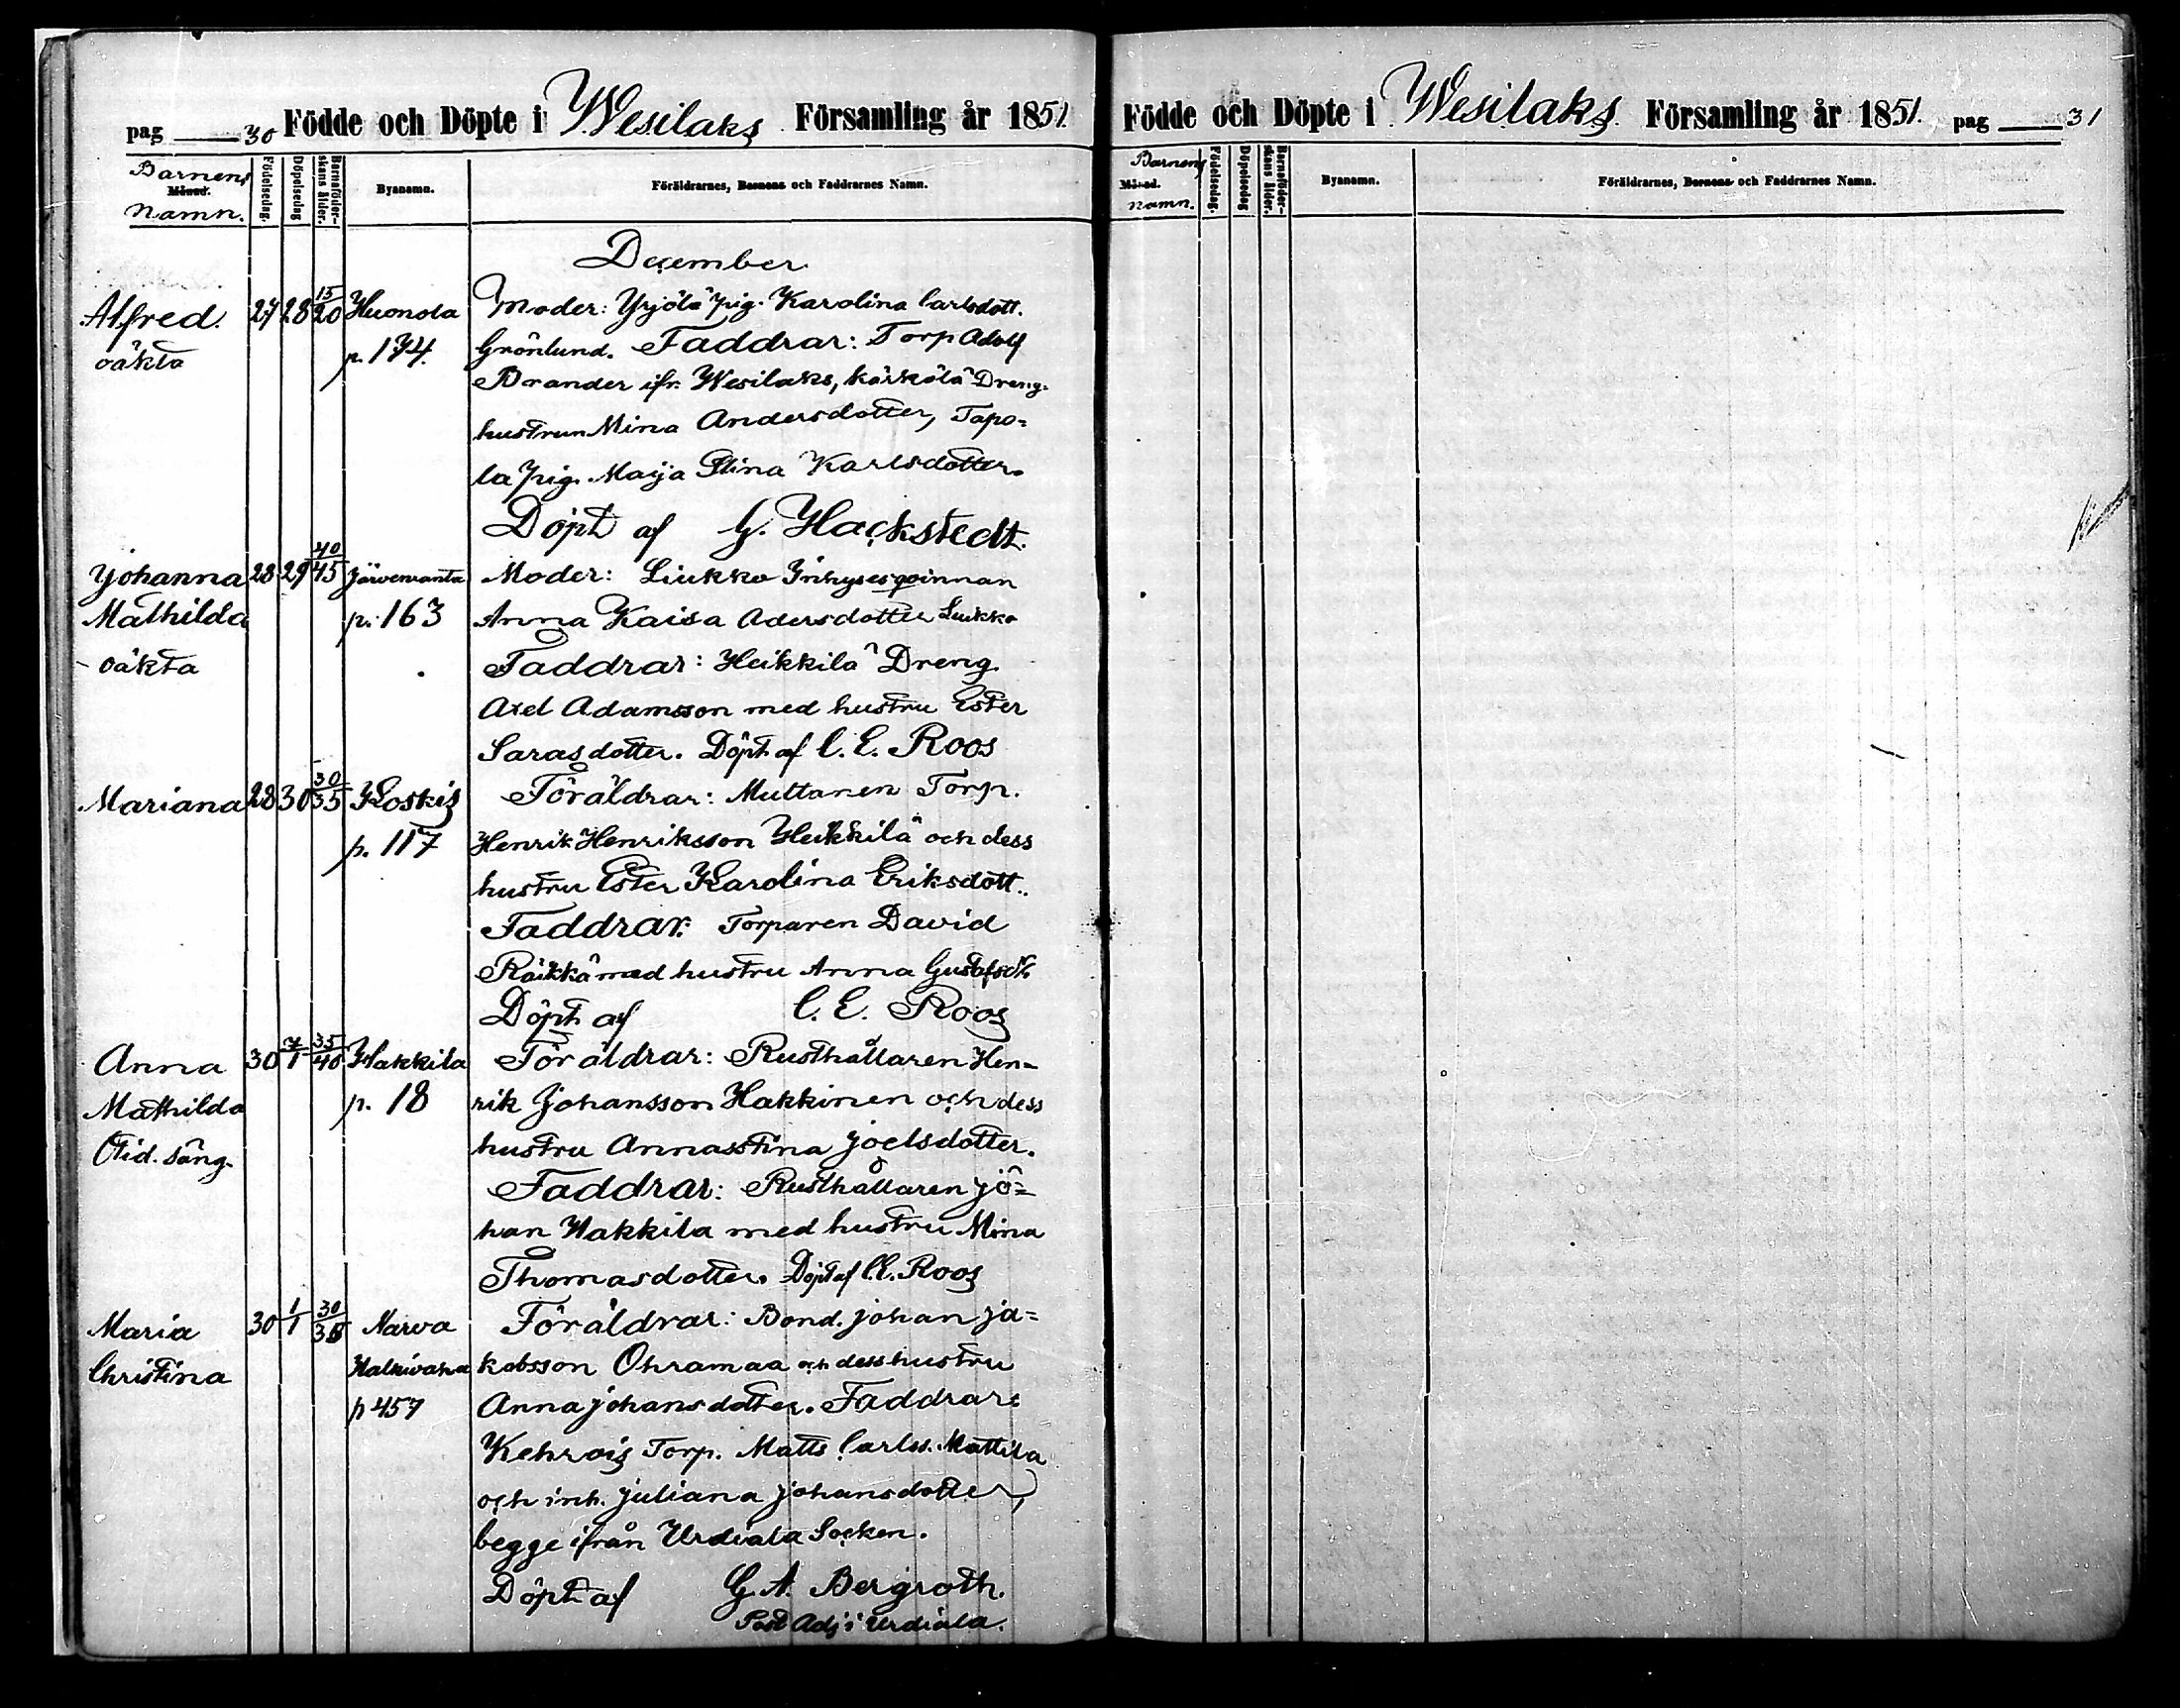 pag 30 Födde och Döpte i Wesilaks Församling år 1851.
Barnens
Månad.
namn.
Födelsedag.
Döpelsedag
Barnaföder-
skans ålder.
Byanamn.
Föräldrarnes, Barnens och Faddrarnes Namn.
December
Alfred. 27 28 15/20 Huonola Moder: Yrjölä pig. Karolina Carlsdott.
oäkta p. 174. Grönlund. Faddrar: Torp Adolf
Brander ifr. Wesilaks, Kärkölä Dreng.
hustrun Mina Andersdotter, Tapo=
la pig. Maija Stina Karlsdotter.
Döpt af G. Hackstedt.
Johanna 28 29 40/45 Järvenranta Moder: Liukko Inhysesqvinnan
Mathilda p. 163 Anna Kaisa Adersdotter Liukko
oäkta Faddrar: Heikkilä Dreng.
Axel Adamsson med hustru Ester
Sarasdotter. Döpt af C. E. Roos
Mariana 28 30 30/35 Koskis Föräldrar: Multanen Torp.
p. 117 Henrik Henriksson Heikkilä och dess
hustru Ester Karolina Eriksdott..
Faddrar: Torparen David
Räikkä med hustru Anna Gustafsdr
Döpt af C. E. Roos
Anna 30 1/1 35/40 Hakkila Föräldrar: Rusthållaren Hen=
Mathilda p. 18 rik Johansson Hakkinen och dess
Otid. säng. hustru Annasstina Joelsdotter.
Faddrar: Rusthållaren Jo=
han Hakkila med hustru Mina
Thomasdotter. Döpt af C. E. Roos
Maria 30 1/1 30/35 Narva Föräldrar: Bond. Johan Ja=
Christina Halkivaha kobsson Ohramaa och dess hustru
p 457 Anna Johansdotter. Faddrar:
Kehrois Torp. Matts Carlss. Mattila
och inh. Juliana Johansdotter,
begge ifrån Urdiala Socken.
Döpt af G. A. Bergroth.
Past Adj i Urdiala.
Födde och Döpte i Wesilaks Församling år 1851. pag 31
Barnens
Månad.
namn.
Födelsedag.
Döpelsedag
Barnaföder-
skans ålder.
Byanamn.
Föräldrarnes, Barnens och Faddrarnes Namn.